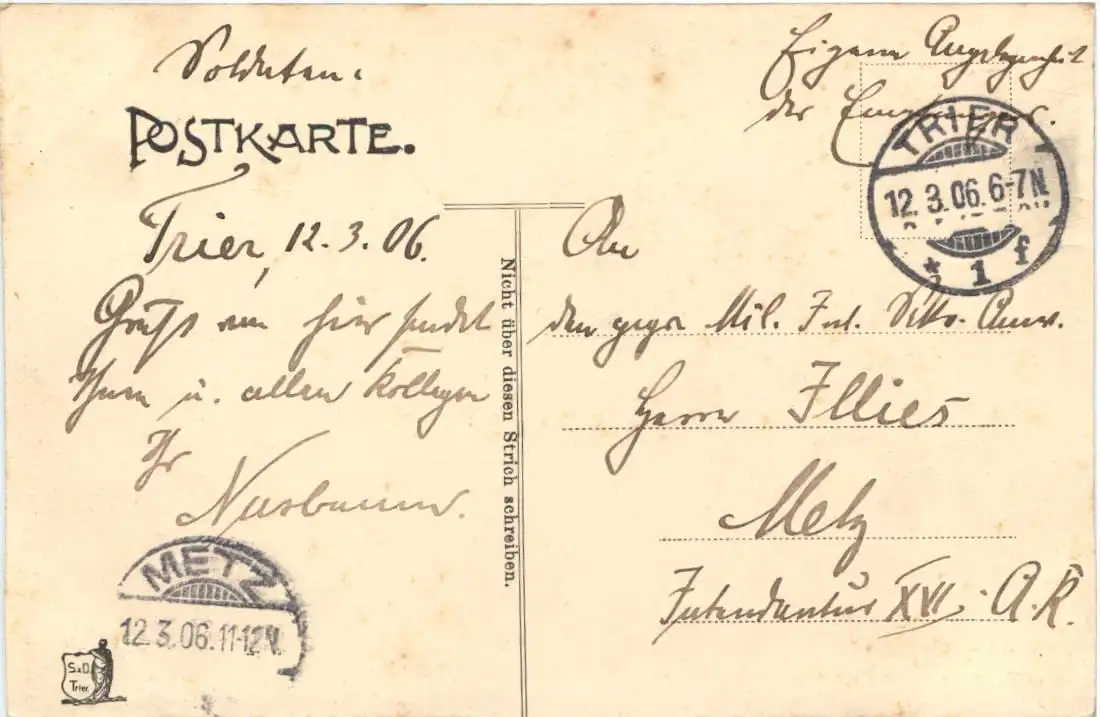 Soldaten-
POSTKARTE.
Trier, 12.3.06.
Gruß von hier sendet
Ihnen u. allen Kollegen
Ihr
Nusbaum.
Eigene Angelegenheit
des Empfängers.
TRIER
12.3.06.6-7N.
* 1 f
An
den Mil. Int.
Herrn Illies
Metz
Intendantur XVI. A.K.
Nicht über diesen Strich schreiben.
METZ
12.3.06.11-12N.
S.&D.
Trier